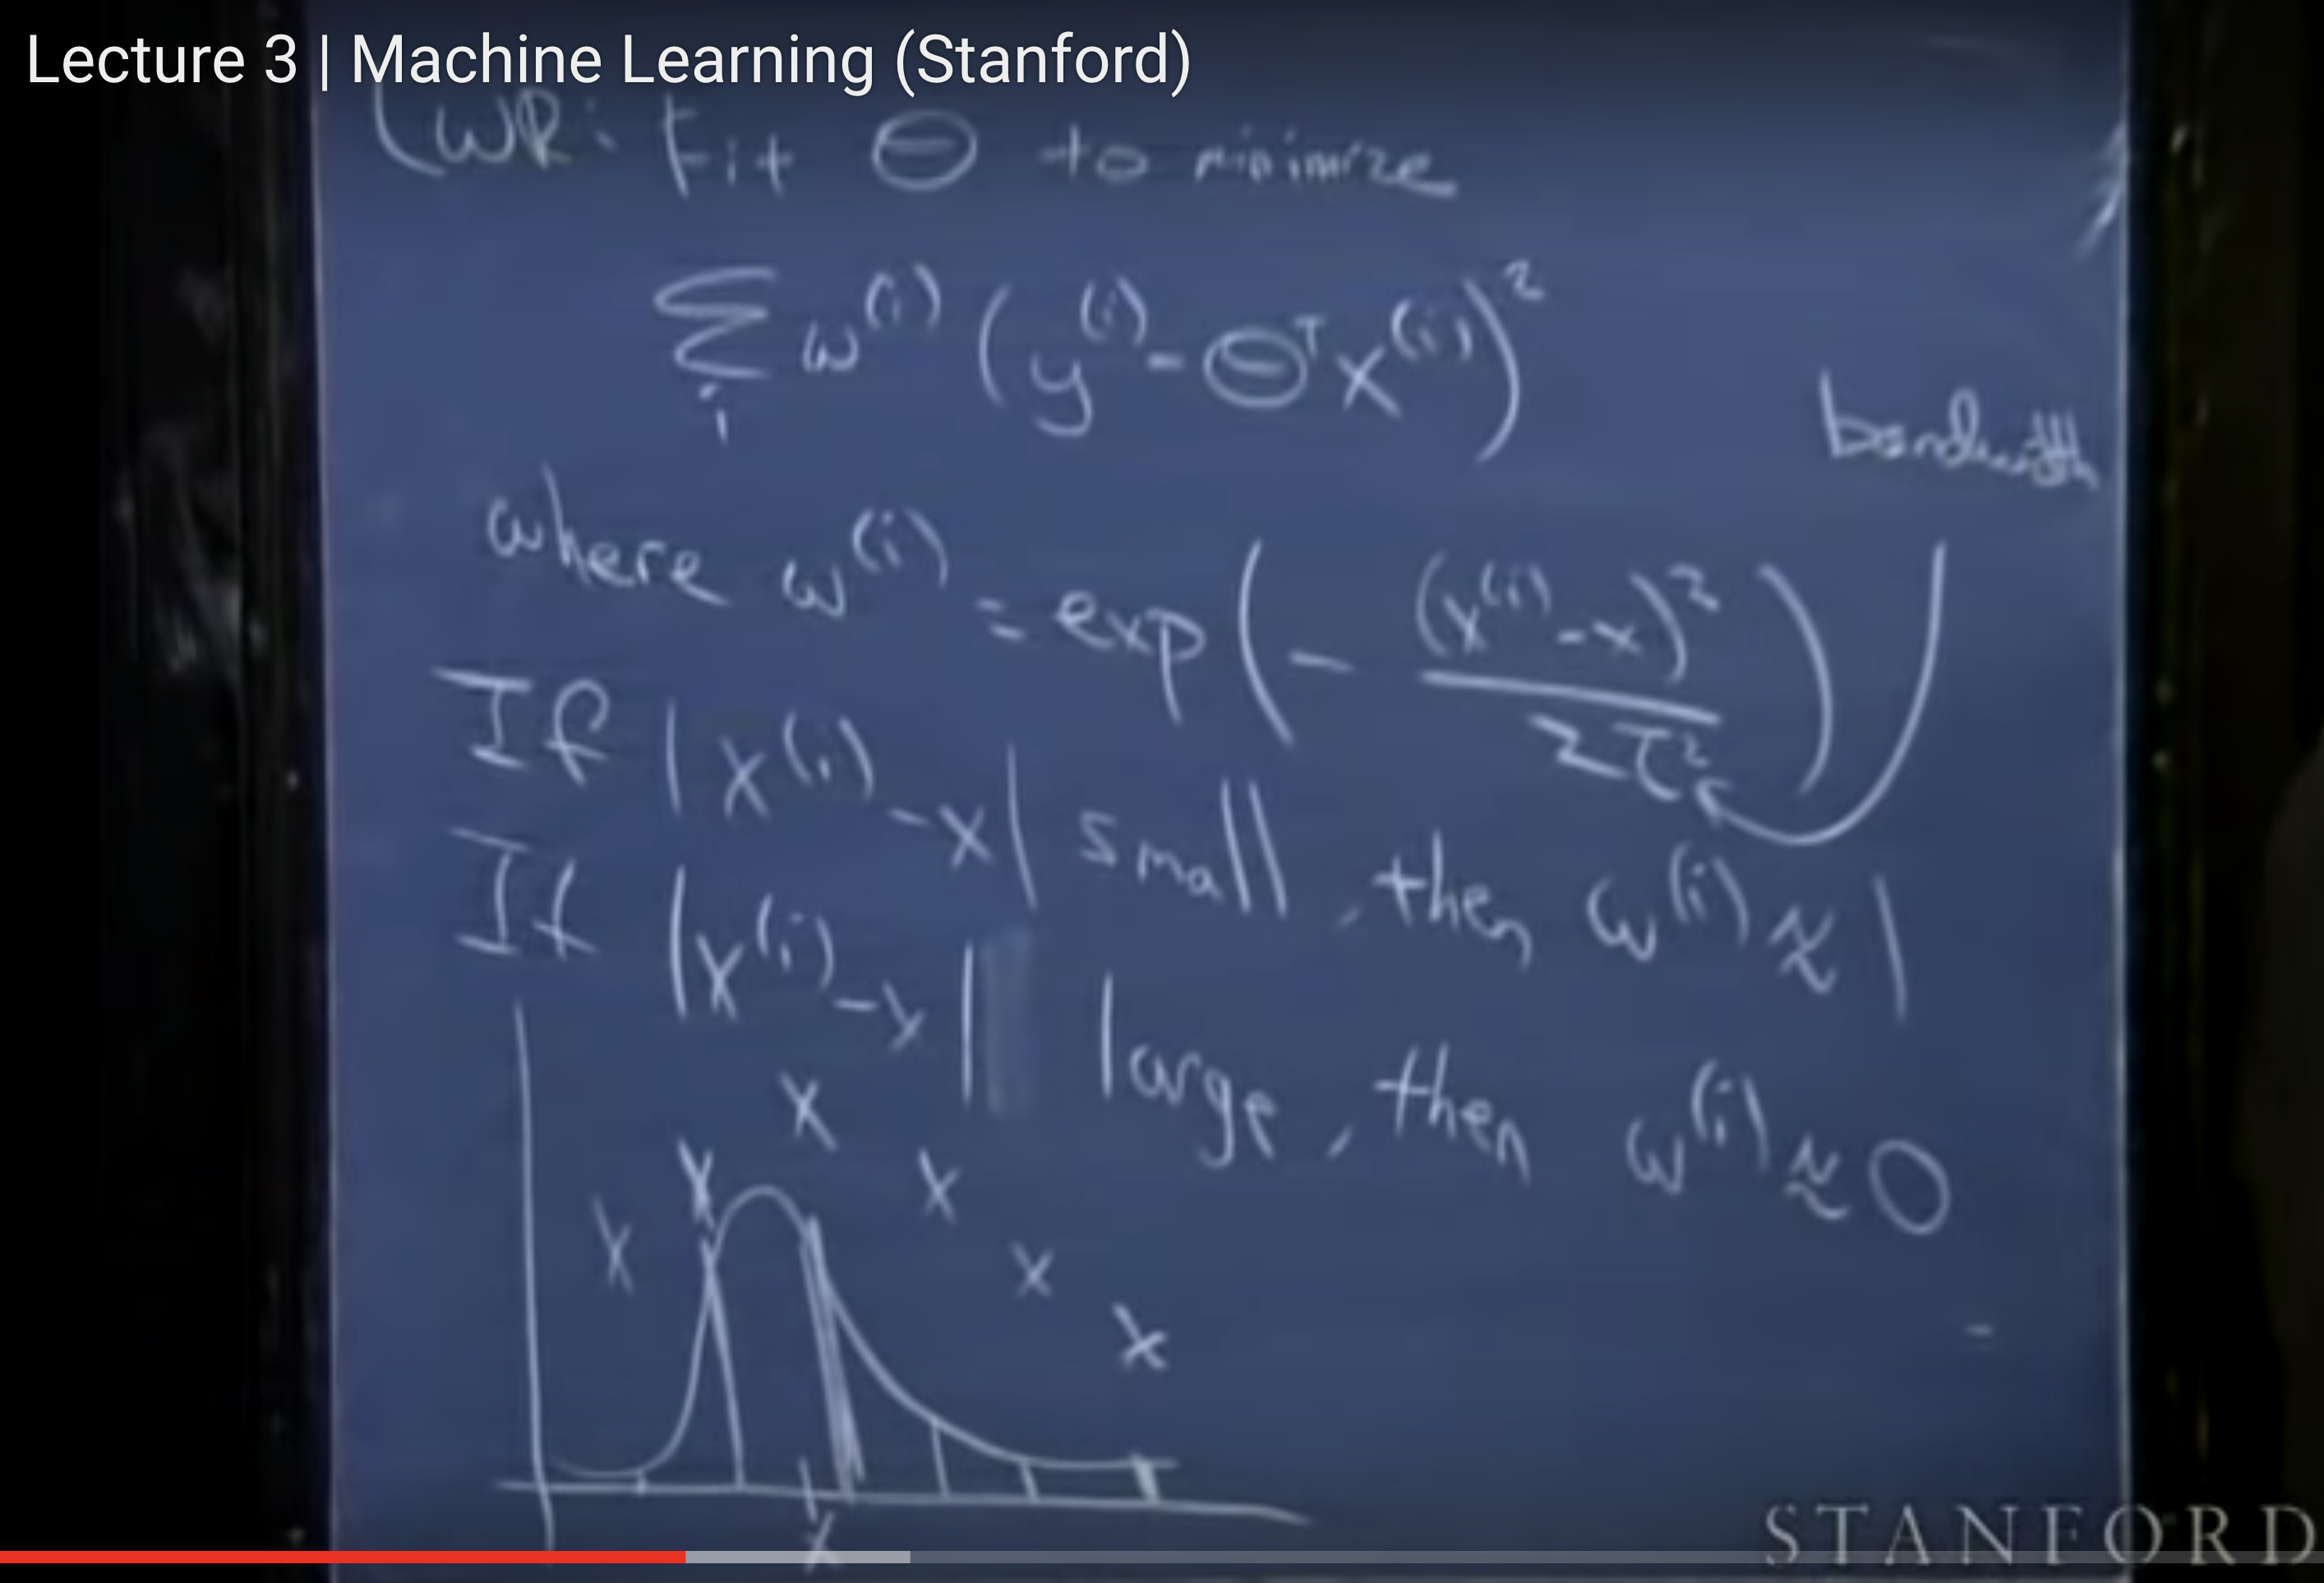 Lecture 3 | Machine Learning (Stanford)
LWR: Fit Θ to minimize
∑ᵢ ω⁽ⁱ⁾ (y⁽ⁱ⁾ - Θᵀx⁽ⁱ⁾)²
bandwidth
where ω⁽ⁱ⁾ = exp(- (x⁽ⁱ⁾ - x)² / 2τ²)
If |x⁽ⁱ⁾ - x| small, then ω⁽ⁱ⁾ ≈ 1
If |x⁽ⁱ⁾ - x| large, then ω⁽ⁱ⁾ ≈ 0
x
STANFORD